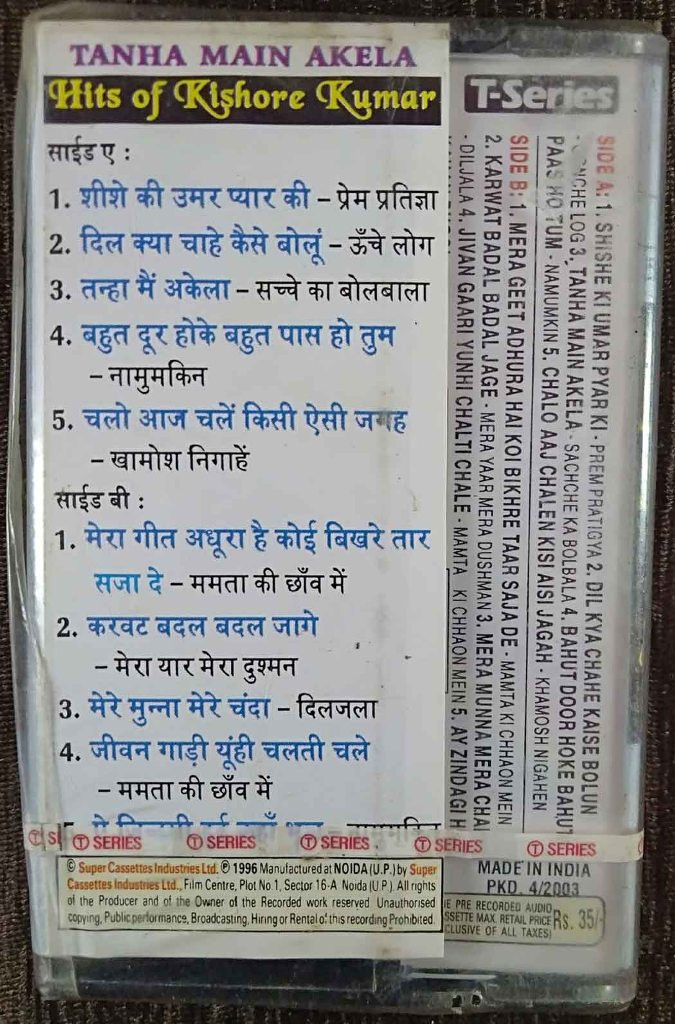 TANHA MAIN AKELA
Hits of Kishore Kumar
साईड ए :
1. शीशे की उमर प्यार की – प्रेम प्रतिज्ञा
2. दिल क्या चाहे कैसे बोलूं – ऊँचे लोग
3. तन्हा मैं अकेला – सच्चे का बोलबाला
4. बहुत दूर होके बहुत पास हो तुम
– नामुमकिन
5. चलो आज चलें किसी ऐसी जगह
– खामोश निगाहें
साईड बी :
1. मेरा गीत अधूरा है कोई बिखरे तार
सजा दे – ममता की छाँव में
2. करवट बदल बदल जागे
– मेरा यार मेरा दुश्मन
3. मेरे मुन्ना मेरे चंदा – दिलजला
4. जीवन गाड़ी यूंही चलती चले
– ममता की छाँव में
T-Series
SIDE A: 1. SHISHE KI UMAR PYAR KI - PREM PRATIGYA 2. DIL KYA CHAHE KAISE BOLUN
LOG 3. TANHA MAIN AKELA - SACHCHE KA BOLBALA 4. BAHUT DOOR HOKE BAHUT
PAAS HO TUM - NAMUMKIN 5. CHALO AAJ CHALEN KISI AISI JAGAH - KHAMOSH NIGAHEN
SIDE B: 1. MERA GEET ADHURA HAI KOI BIKHRE TAAR SAJA DE - MAMTA KI CHHAON MEIN
2. KARWAT BADAL BADAL JAGE - MERA YAAR MERA DUSHMAN 3. MERA MUNNA MERA CHA
- DILJALA 4. JIVAN GAARI YUNHI CHALTI CHALE - MAMTA KI CHHAON MEIN 5. AY ZINDAGI H
T SERIES T SERIES T SERIES T SERIES T SERIES
© Super Cassettes Industries Ltd. ℗ 1996 Manufactured at NOIDA (U.P.) by Super
Cassettes Industries Ltd., Film Centre, Plot No 1, Sector 16-A Noida (U.P.) All rights
of the Producer and of the Owner of the Recorded work reserved Unauthorised
copying, Public performance, Broadcasting, Hiring or Rental of this recording Prohibited.
MADE IN INDIA
PKD. 4/2003
PRE RECORDED AUDIO
SSETTE MAX. RETAIL PRICE Rs. 35/-
CLUSIVE OF ALL TAXES)